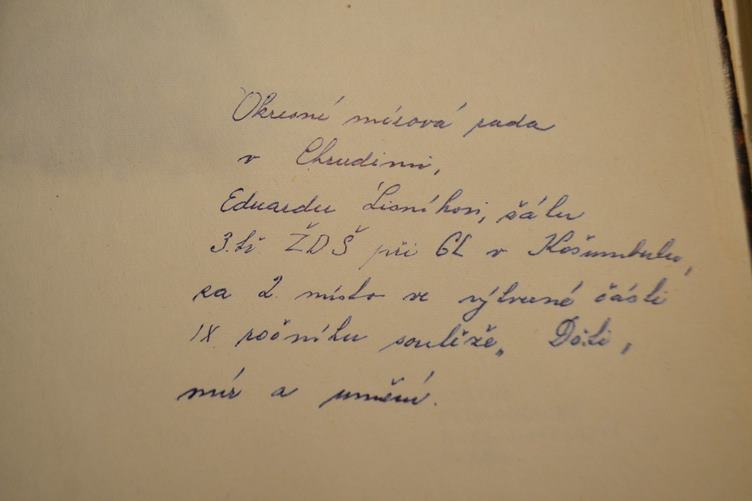 Okresní mírová rada
v Chrudimi,
Eduardu Lisníkovi, žáku
3.tř ZDŠ při OL v Košumberku,
za 2. místo ve výtvarné části
IX ročníku soutěže „ Děti,
mír a umění.